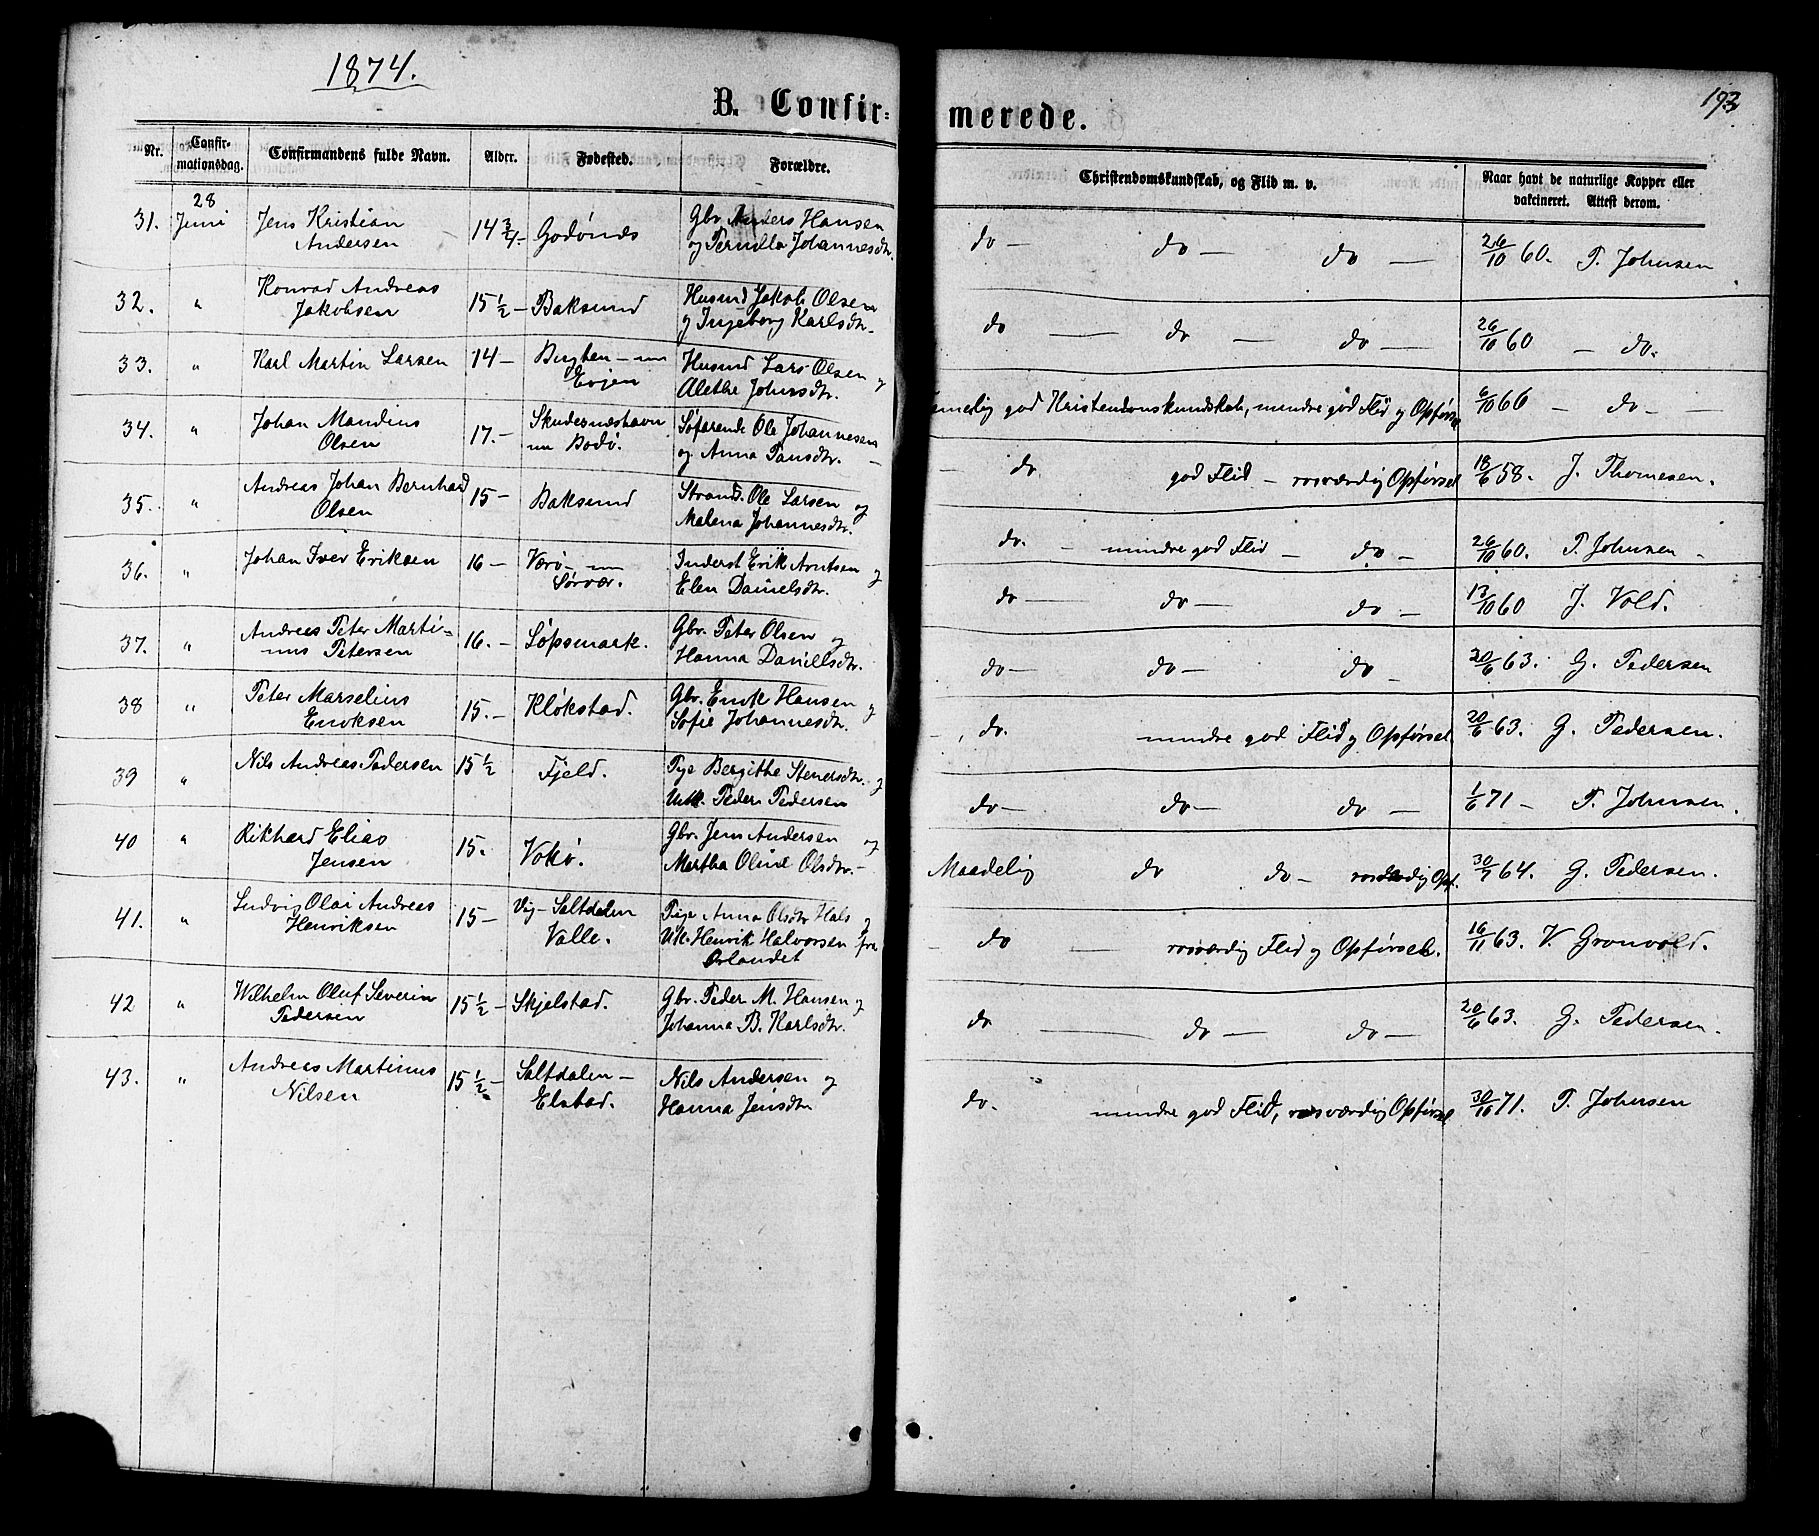 1874.
B. Confir=
merede.
193
Nr.
Confir-
mationsdag.
Confirmandens fulde Navn.
Alder.
Fødested.
Forældre.
Christendomskundskab, og Flid m. v.
Naar havt de naturlige Kopper eller
vakcineret. Attest derom.
28
31. Juni Jens Kristian 14 3/4 - Godønes Gbr. Anders Hansen
Andersen og Pernilla Johannesdtr.
do — do — do — 26/10 60. T. Johnsen
32. " Konrad Andreas 15 1/2 - Baksund Husmd Jakob Olsen
Jakobsen og Ingeborg Karlsdtr.
do — do — do — 26/10 60 — do.
33. " Karl Martin Larsen 14 - Bugten - nu Husmd Lars Olsen og
Evjen Alethe Johnsdtr.
god Kristendomskundskab, mindre god Flid og Opførsel 6/10 66 — do —
34. " Johan Mandius 17. - Skudesneshavn Søfarende Ole Johannesen
Olsen nu Bodø. og Anna Hansdtr.
— do god Flid — rosværdig Opførsel 18/6 58. J. Thomesen.
35. " Andreas Johan Bernhard 15 - Baksund Strands. Ole Larsen og
Olsen Malena Johannesdtr.
do. — mindre god Flid — do — 26/10 60. T. Johnsen -
36. " Johan Iver Eriksen 16 - Værø - nu Inderst Erik Arntsen og
Sørvær. Elen Danielsdtr.
do — do — do — 13/10 60 J. Vold.
37. " Andreas Peter Marti= 16. - Løpsmark. Gbr. Peter Olsen og
nus Petersen Hanna Danielsdtr.
do — do — do - 20/6 63. G. Pedersen
38 " Peter Marselius 15. - Kløkstad. Gbr. Enok Hansen og
Enoksen Sofie Johannesdtr.
- do. mindre god Flid og Opførsel 20/6 63. G. Pedersen.
39 " Nils Andreas Pedersen 15 1/2 Fjeld. Pige Bergithe Stenersdtr. og
Unk. Peder Pedersen
do — do — do — 1/6 71 - T. Johnsen.
40 " Rikhard Elias 15. Vokø. Gbr. Jens Andersen og
Jensen Martha Oline Olsdtr. -
Maadelig do do — rosværdig Opf. 30/7 64. G. Pedersen.
41. " Ludvig Olai Andreas 15 - Vig - Saltdalen Pige Anna Olsdtr Hals og
Henriksen Valle. Uk. Henrik Halvorsen fra
Ørlandet
- do — rosværdig Flid og Opførsel. 16/11 63. V. Gronvold.
42 " Wilhelm Oluf Severin 15 1/2 - Skjelstad. Gbr. Peder M. Hansen og
Pedersen Johanna B. Karlsdtr.
do — do — do — 20/6 63. G. Pedersen.
43. " Andreas Martinus 15 1/2 - Saltdalen - Nils Andersen og
Nilsen Elstad. Hanna Jensdtr
do. mindre god Flid, rosværdig Opførsel 30/10 71. T. Johnsen